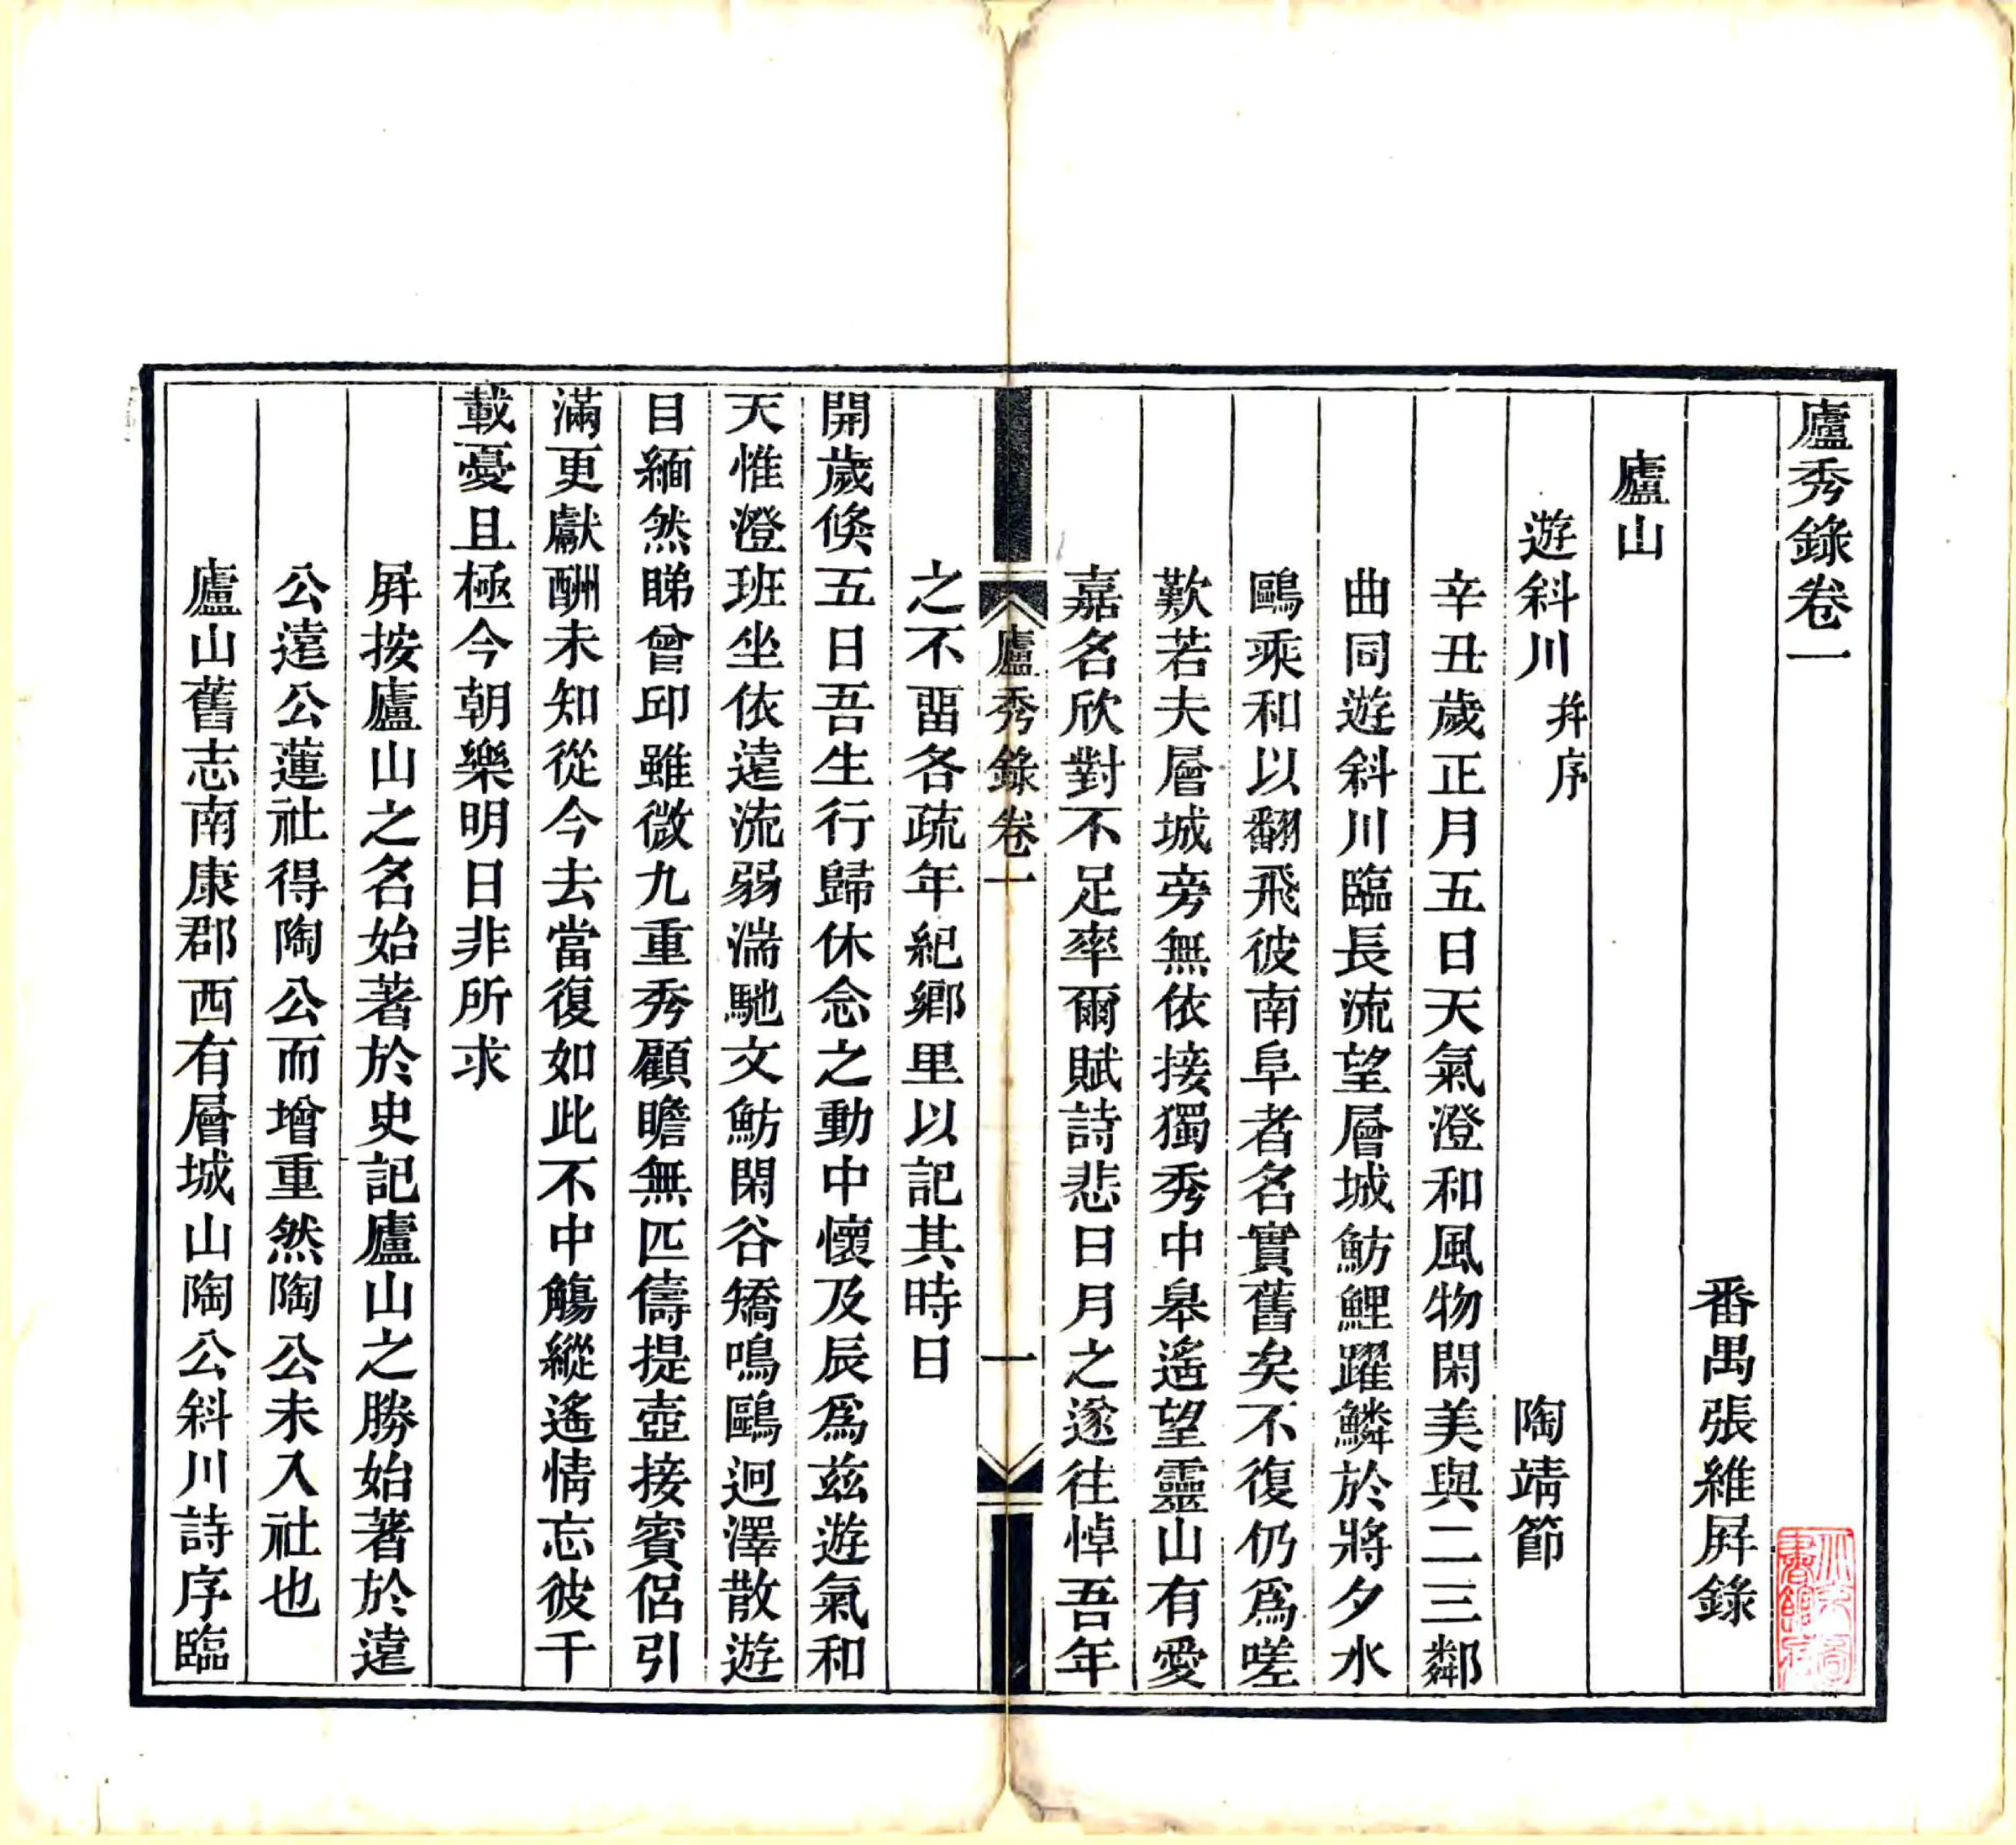 廬秀錄卷一
番禺張維屛錄
廬山
遊斜川 幷序 陶靖節
辛丑歲正月五日天氣澄和風物閑美與二三鄰
曲同遊斜川臨長流望層城魴鯉躍鱗於將夕水
鷗乘和以翻飛彼南阜者名實舊矣不復仍爲嗟
歎若夫層城旁無依接獨秀中皋遙望靈山有愛
嘉名欣對不足率爾賦詩悲日月之遂往悼吾年
廬秀錄卷一 一
之不留各疏年紀鄉里以記其時日
開歲倏五日吾生行歸休念之動中懷及辰爲茲遊氣和
天惟澄班坐依遠流弱湍馳文魴閑谷矯鳴鷗迥澤散遊
目緬然睇曾邱雖微九重秀顧瞻無匹儔提壺接賓侶引
滿更獻酬未知從今去當復如此不中觴縱遙情忘彼千
載憂且極今朝樂明日非所求
屛按廬山之名始著於史記廬山之勝始著於遠
公遠公蓮社得陶公而增重然陶公未入社也
廬山舊志南康郡西有層城山陶公斜川詩序臨